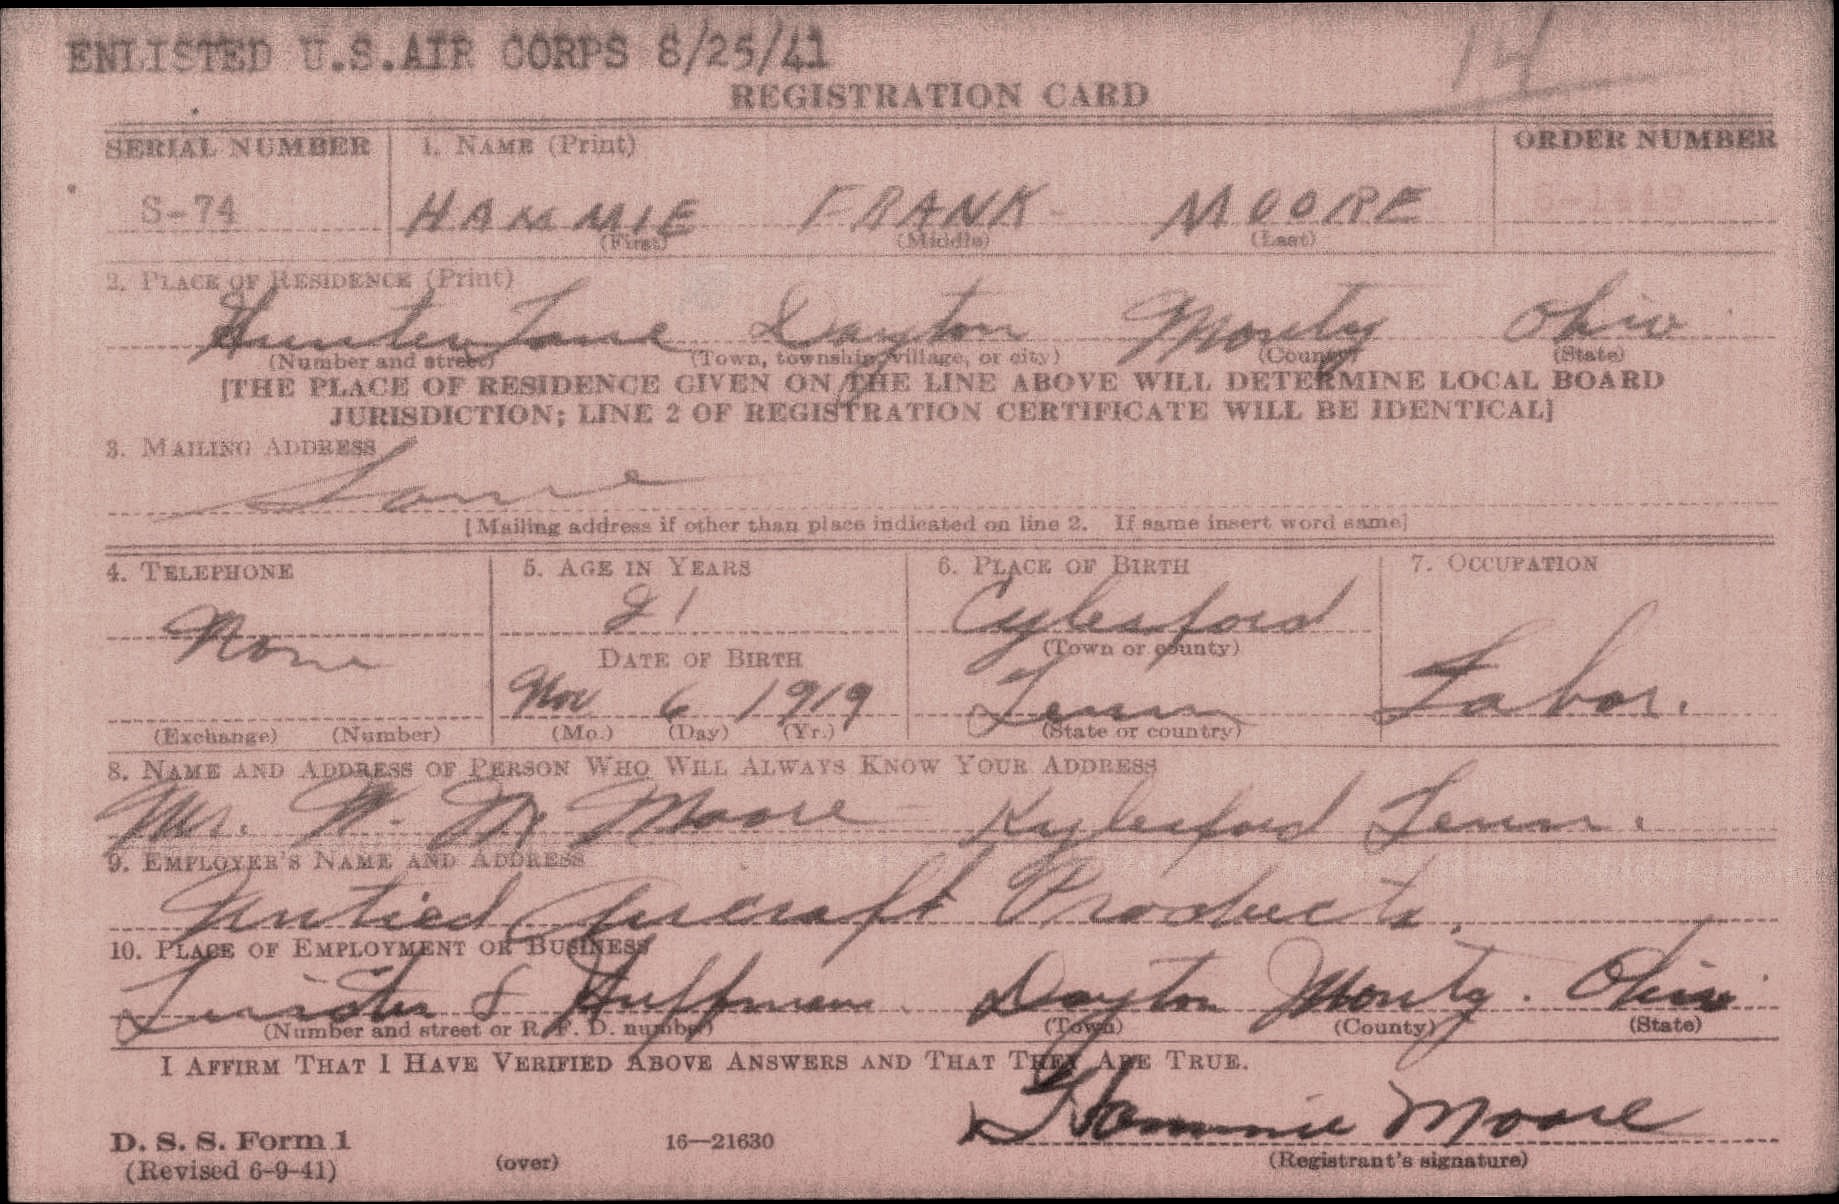 ENLISTED U.S.AIR CORPS 8/25/41
14
REGISTRATION CARD
SERIAL NUMBER 1. NAME (Print) ORDER NUMBER
S-74 HAMMIE FRANK MOORE S-1449
(First) (Middle) (Last)
2. PLACE OF RESIDENCE (Print)
Hunter Lane Dayton Monty Ohio
(Number and street) (Town, township, village, or city) (County) (State)
[THE PLACE OF RESIDENCE GIVEN ON THE LINE ABOVE WILL DETERMINE LOCAL BOARD
JURISDICTION; LINE 2 OF REGISTRATION CERTIFICATE WILL BE IDENTICAL]
3. MAILING ADDRESS
Same
[Mailing address if other than place indicated on line 2. If same insert word same]
4. TELEPHONE 5. AGE IN YEARS 6. PLACE OF BIRTH 7. OCCUPATION
None 21 Cylesford
(Town or county)
DATE OF BIRTH
Nov 6 1919 Tenn Labor.
(Exchange) (Number) (Mo.) (Day) (Yr.) (State or country)
8. NAME AND ADDRESS OF PERSON WHO WILL ALWAYS KNOW YOUR ADDRESS
Mr. W. M. Moore - Kylesford Tenn.
9. EMPLOYER'S NAME AND ADDRESS
Untied Aircraft Products.
10. PLACE OF EMPLOYMENT OR BUSINESS
& Huffman. Dayton Monty. Ohio
(Number and street or R. F. D. number) (Town) (County) (State)
I AFFIRM THAT I HAVE VERIFIED ABOVE ANSWERS AND THAT THEY ARE TRUE.
Hammie Moore
D. S. S. Form 1
(Revised 6-9-41) (over) 16—21630 (Registrant's signature)